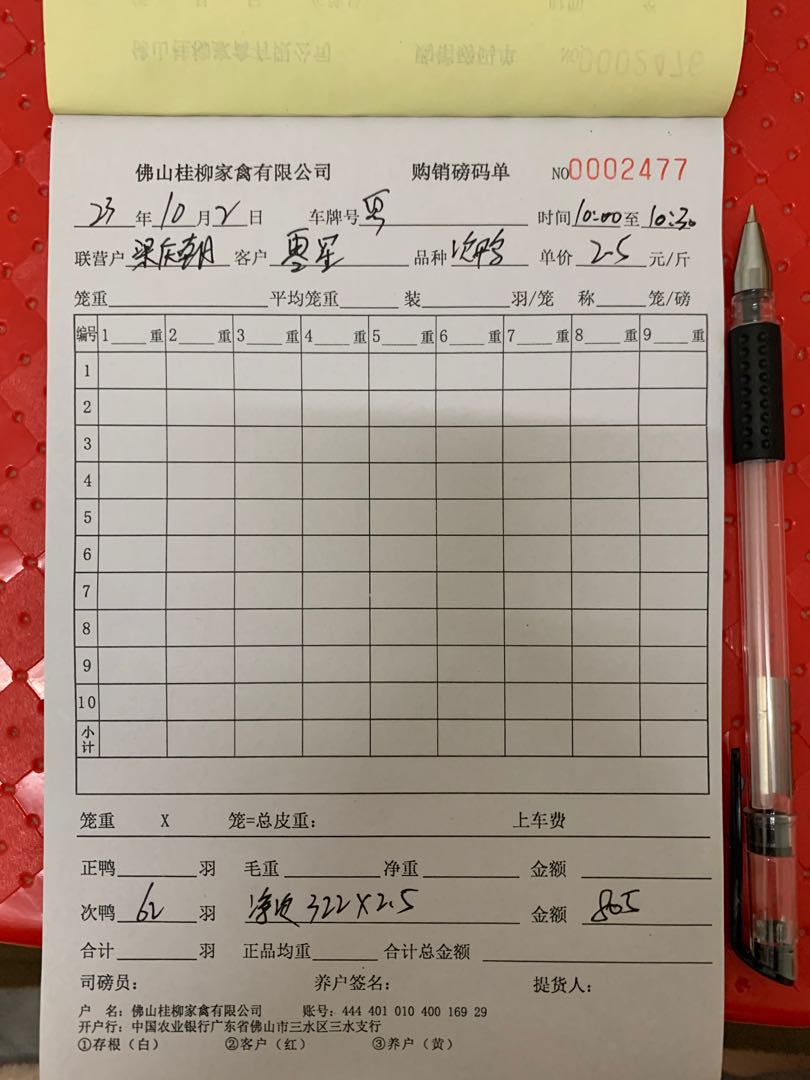 佛山桂柳家禽有限公司 购销磅码单 NO0002476
佛山桂柳家禽有限公司 购销磅码单 NO0002477
23年10月2日 车牌号粤 时间10:00至10:30
联营户梁庆朝 客户粤星 品种次鸭 单价2.5元/斤
笼重 平均笼重 装 羽/笼 称 笼/磅
编号 1 重 2 重 3 重 4 重 5 重 6 重 7 重 8 重 9 重
1
2
3
4
5
6
7
8
9
10
小计
笼重 X 笼=总皮重: 上车费
正鸭 羽 毛重 净重 金额
次鸭62羽 净重322X2.5 金额805
合计 羽 正品均重 合计总金额
司磅员: 养户签名: 提货人:
户 名:佛山桂柳家禽有限公司 账号:444 401 010 400 169 29
开户行:中国农业银行广东省佛山市三水区三水支行
①存根(白) ②客户(红) ③养户(黄)